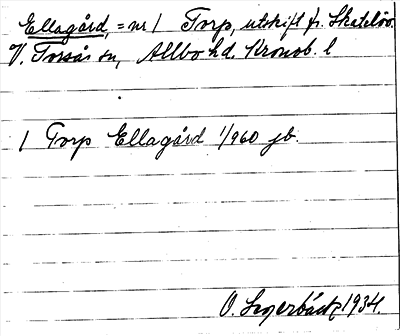 Ellagård, = nr 1 Torp, utskift fr. Skatelöv.
V. Torsås sn, Allbo hd. Kronob. l
1 Torp Ellagård 1/960 jb.
O. 1934.